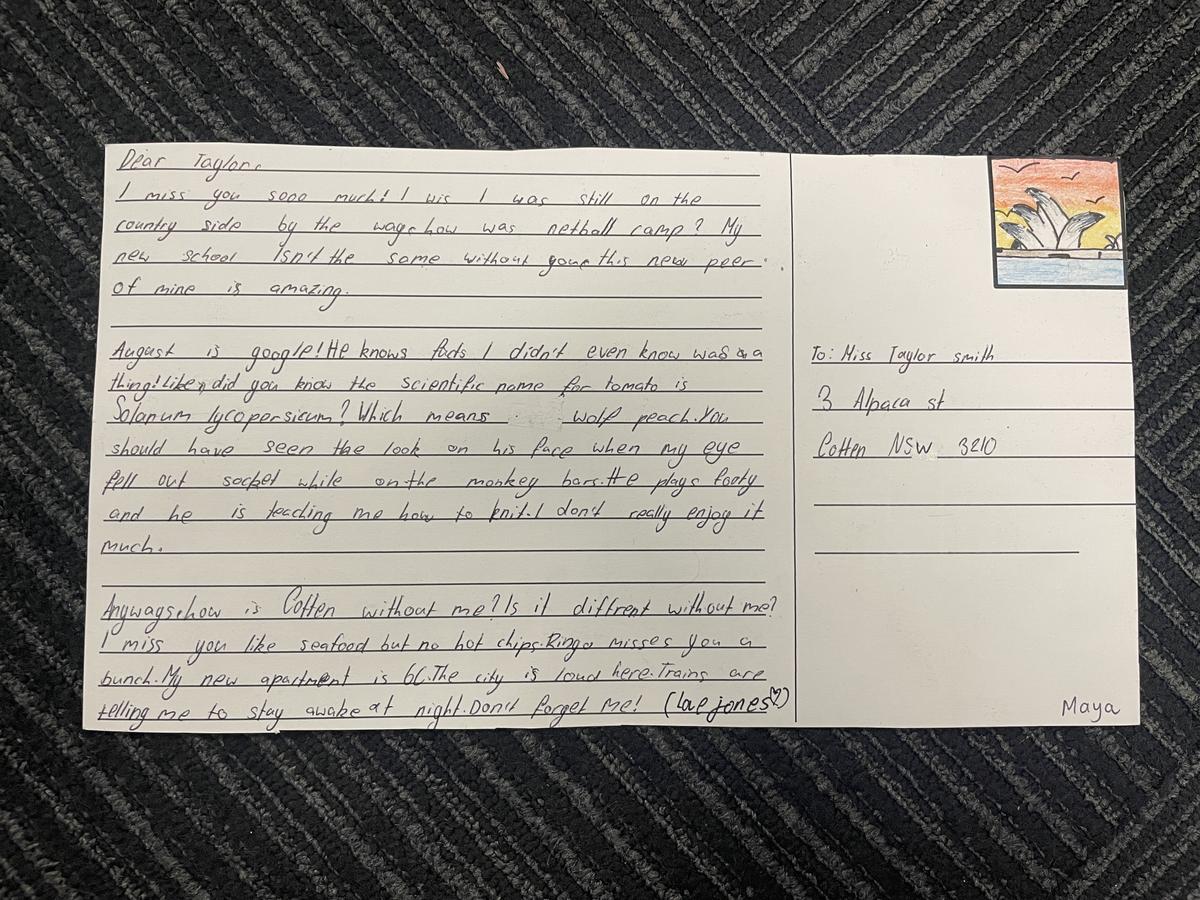 Dear Taylor,
I miss you sooo much! I wis I was still on the
country side by the way, how was netball camp? My
new school Isn't the same without you, this new peer
of mine is amazing.
August is google! He knows facts I didn't even know was a
thing! Like, did you know the scientific name for tomato is
Solanum lycopersicum? Which means wolf peach. You
should have seen the look on his face when my eye
fell out socket while on the monkey bars. He plays footy
and he is teaching me how to knit. I don't really enjoy it
much.
Anyways, how is Cotten without me? Is it diffrent without me?
I miss you like seafood but no hot chips. Ringo misses you a
bunch. My new apartment is 6C. The city is loud here. Trains are
telling me to stay awake at night. Don't forget me! (Lae jones♡)
To: Miss Taylor smith
3 Alpaca st
Cotten NSW 3210
Maya